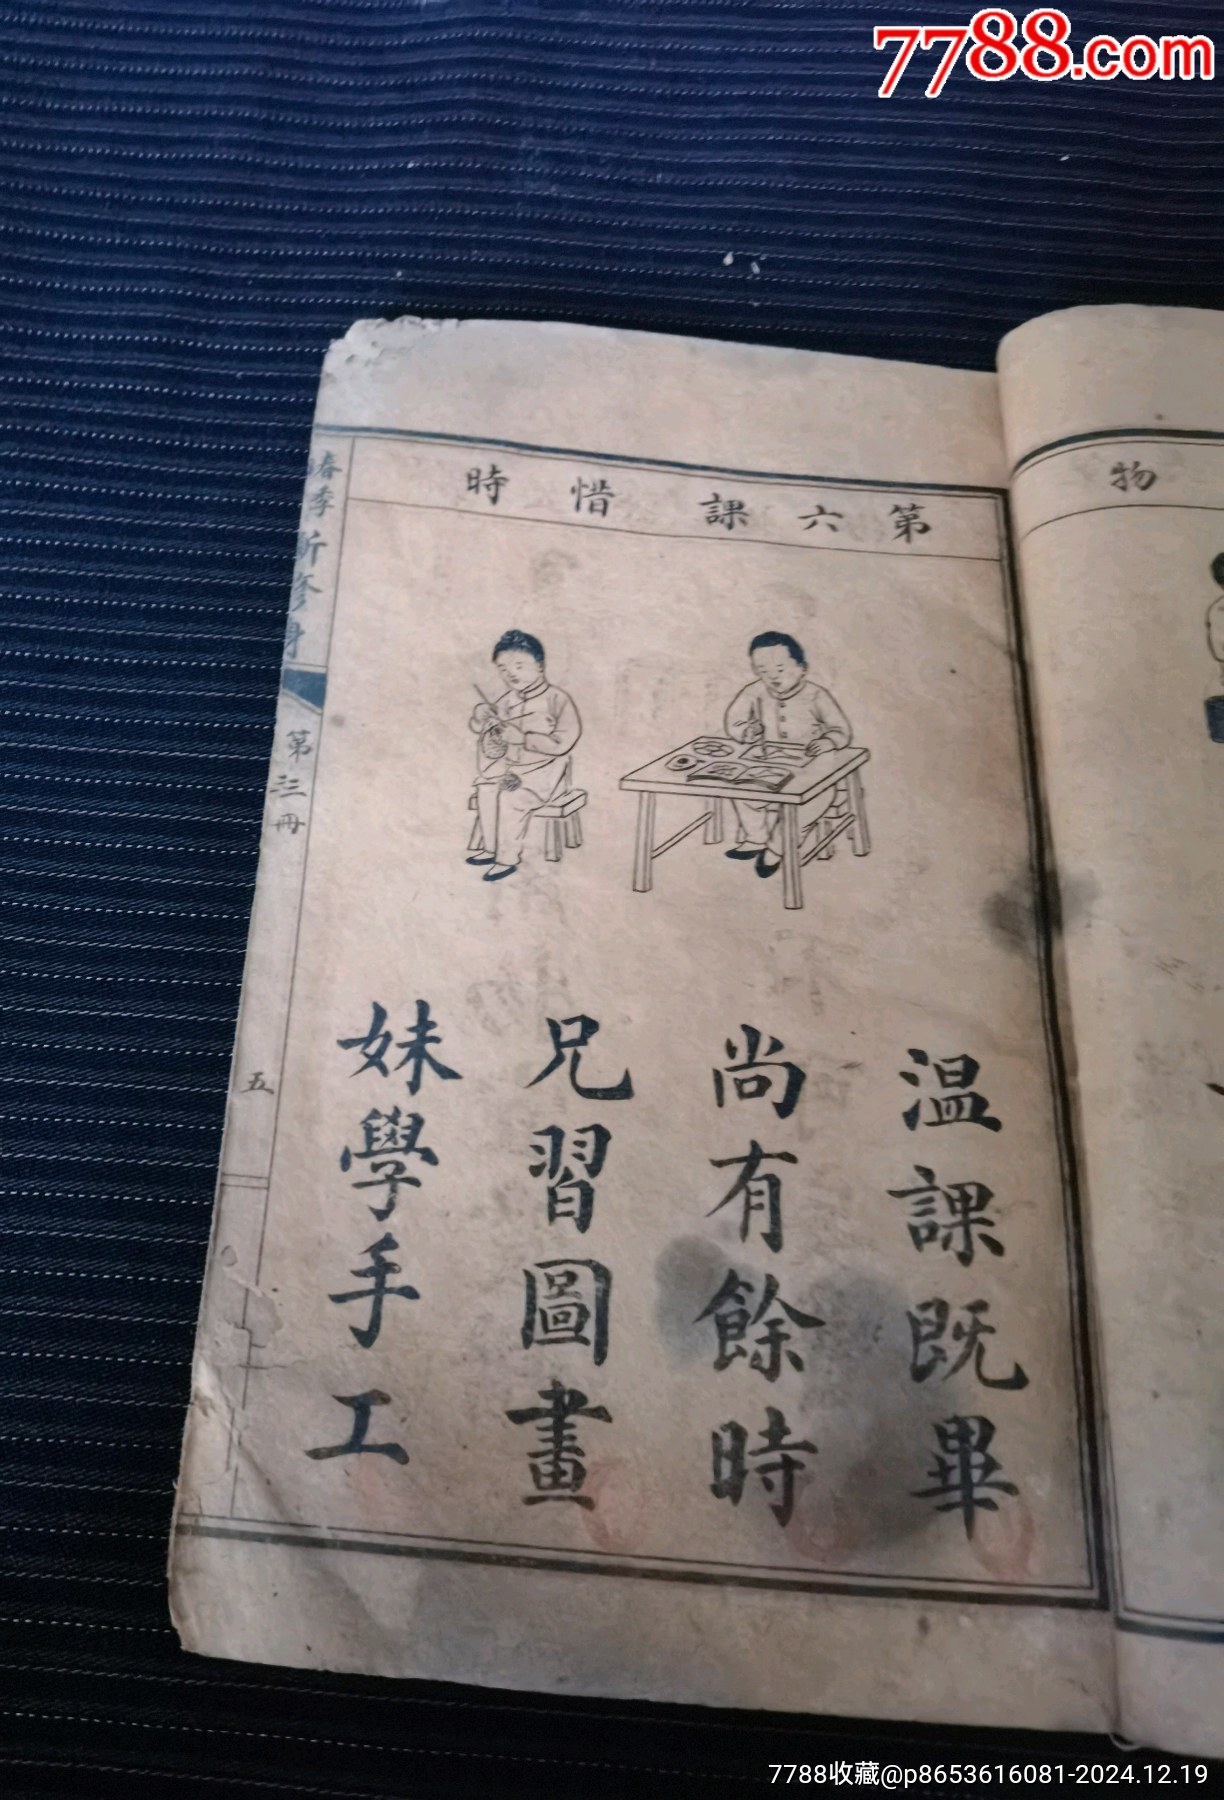 7788.com
第六課 惜時
溫課既畢
尚有餘時
兄習圖畫
妹學手工
春季新修身
第三冊
五
物
7788收藏@p8653616081-2024.12.19